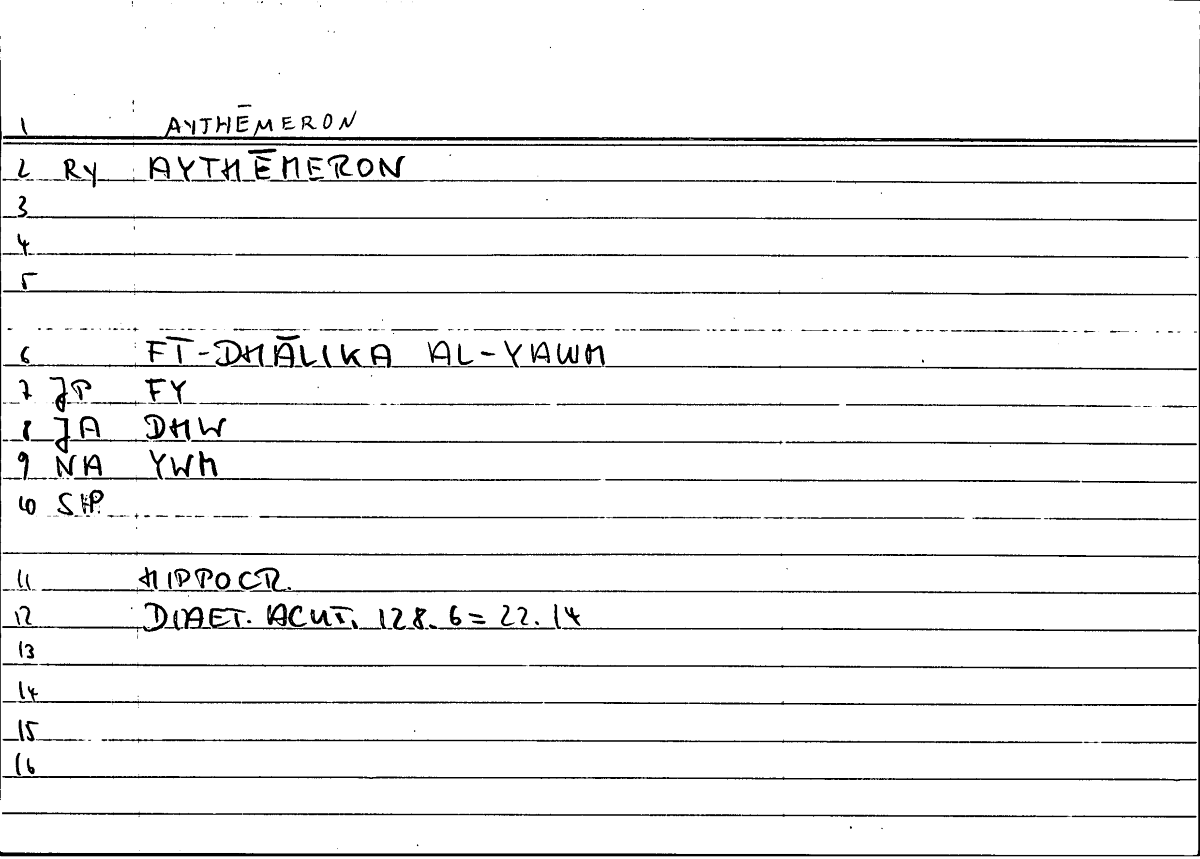 1 AYTHĒMERON
2 RY AYTHĒMERON
3
4
5
6 FĪ-DHĀLIKA AL-YAWM
7 JP FY
8 JA DHW
9 NA YWM
10 SIP
11 HIPPOCR.
12 DIAET. ACUT. 128. 6 = 22. 14
13
14
15
16